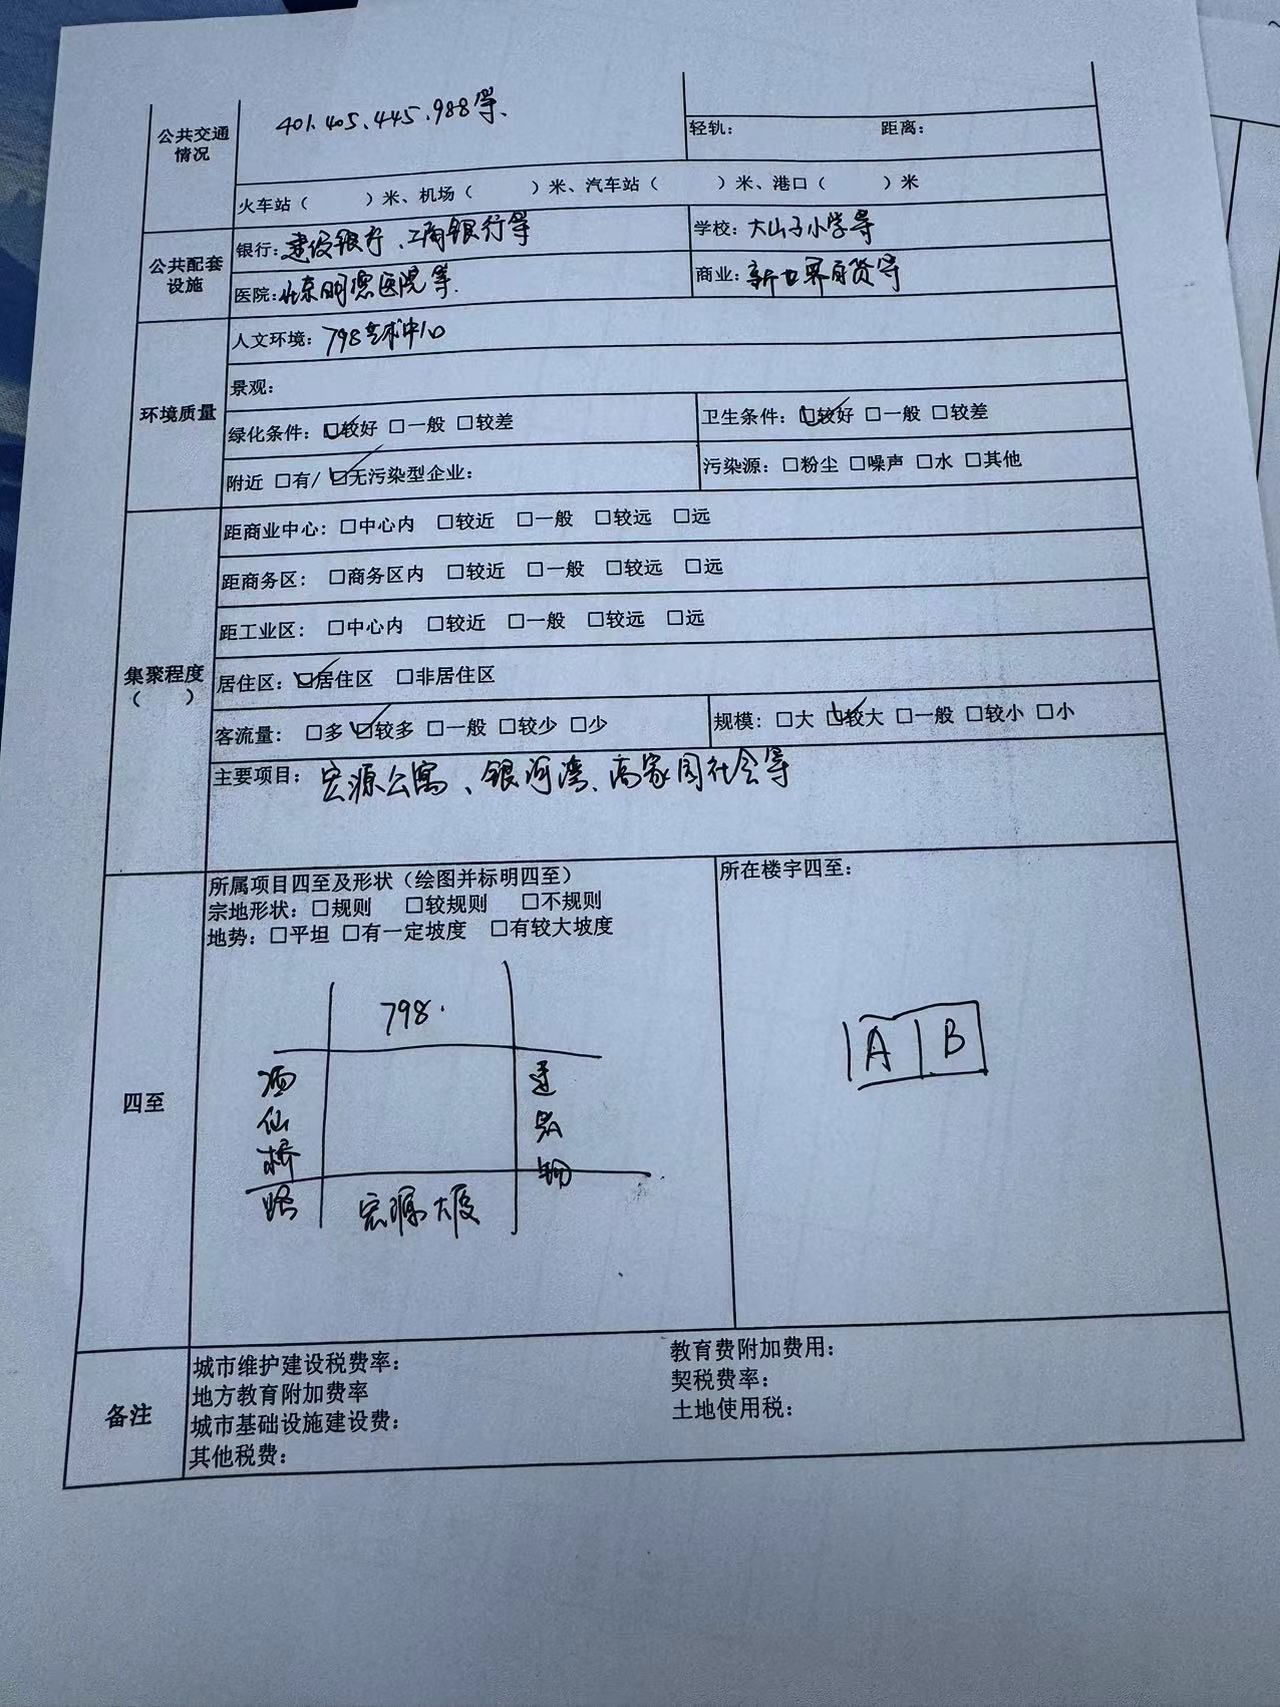 公共交通
情况
401、405、445、988等、
轻轨： 距离：
火车站（ ）米、机场（ ）米、汽车站（ ）米、港口（ ）米
公共配套
设施
银行：建设银行、工商银行等
学校：大山子小学等
医院：北京明德医院等.
商业：新世界百货等
环境质量
人文环境：798艺术中心
景观：
绿化条件：☑较好 □一般 □较差
卫生条件：☑较好 □一般 □较差
附近 □有/☑无污染型企业：
污染源：□粉尘 □噪声 □水 □其他
集聚程度
（ ）
距商业中心：□中心内 □较近 □一般 □较远 □远
距商务区：□商务区内 □较近 □一般 □较远 □远
距工业区：□中心内 □较近 □一般 □较远 □远
居住区：☑居住区 □非居住区
客流量：□多 ☑较多 □一般 □较少 □少
规模：□大 ☑较大 □一般 □较小 □小
主要项目：宏源公寓、银河湾、高家园社会等
四至
所属项目四至及形状（绘图并标明四至）
宗地形状：□规则 □较规则 □不规则
地势：□平坦 □有一定坡度 □有较大坡度
798.
酒
仙
桥
路
宏源大厦
物
所在楼宇四至：
A B
备注
城市维护建设税费率：
教育费附加费用：
地方教育附加费率
契税费率：
城市基础设施建设费：
土地使用税：
其他税费：